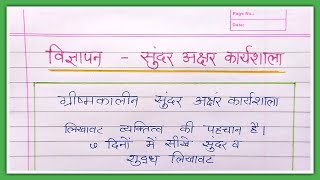 Page No.:
Date:
विज्ञापन - सुंदर अक्षर कार्यशाला
ग्रीष्मकालीन सुंदर अक्षर कार्यशाला
लिखावट व्यक्तित्व की पहचान है।
७ दिनों में सीखें सुंदर व
शुद्ध लिखावट